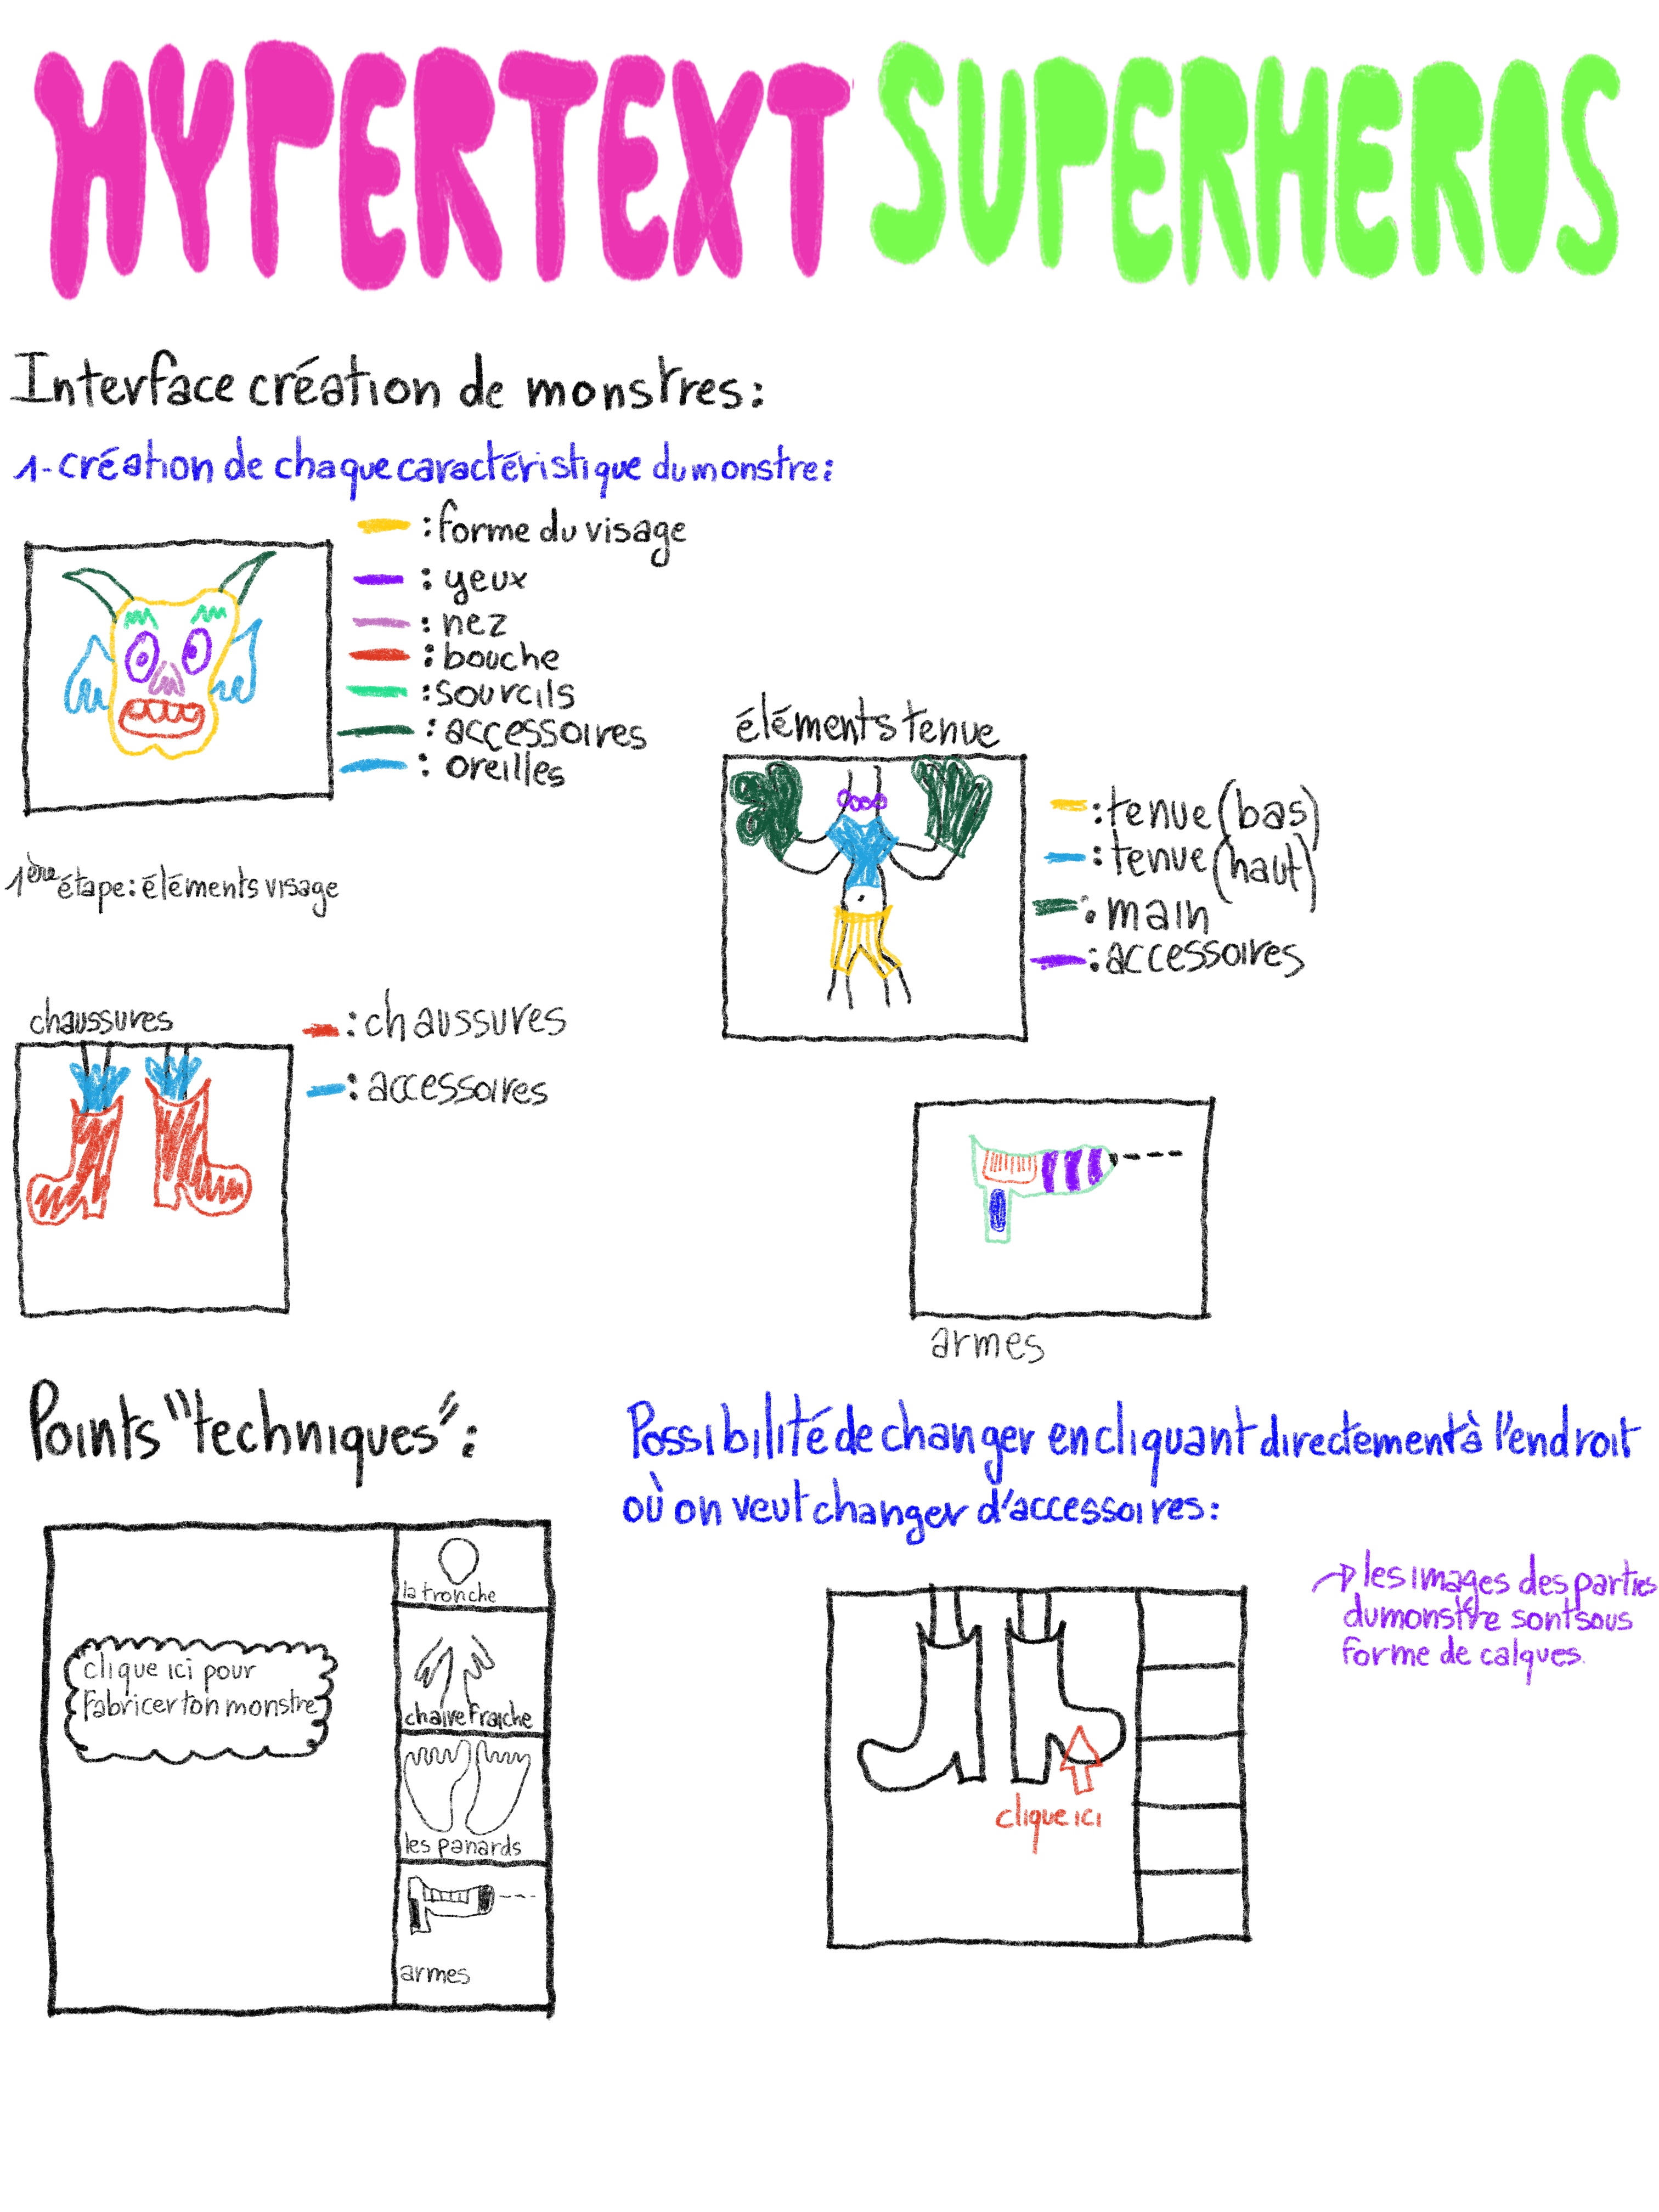 HYPERTEXT SUPERHEROS
Interface création de monstres:
1- création de chaque caractéristique du monstre:
: forme du visage
: yeux
: nez
: bouche
: sourcils
: accessoires
: oreilles
1ère étape: éléments visage
éléments tenue
: tenue (bas)
: tenue (haut)
: main
: accessoires
chaussures
: chaussures
: accessoires
armes
Points "techniques":
la tronche
clique ici pour
fabricer ton monstre
chaire fraiche
les panards
armes
Possibilité de changer en cliquant directement à l'endroit
où on veut changer d'accessoires:
clique ici
les images des parties
du monstre sont sous
forme de calques.